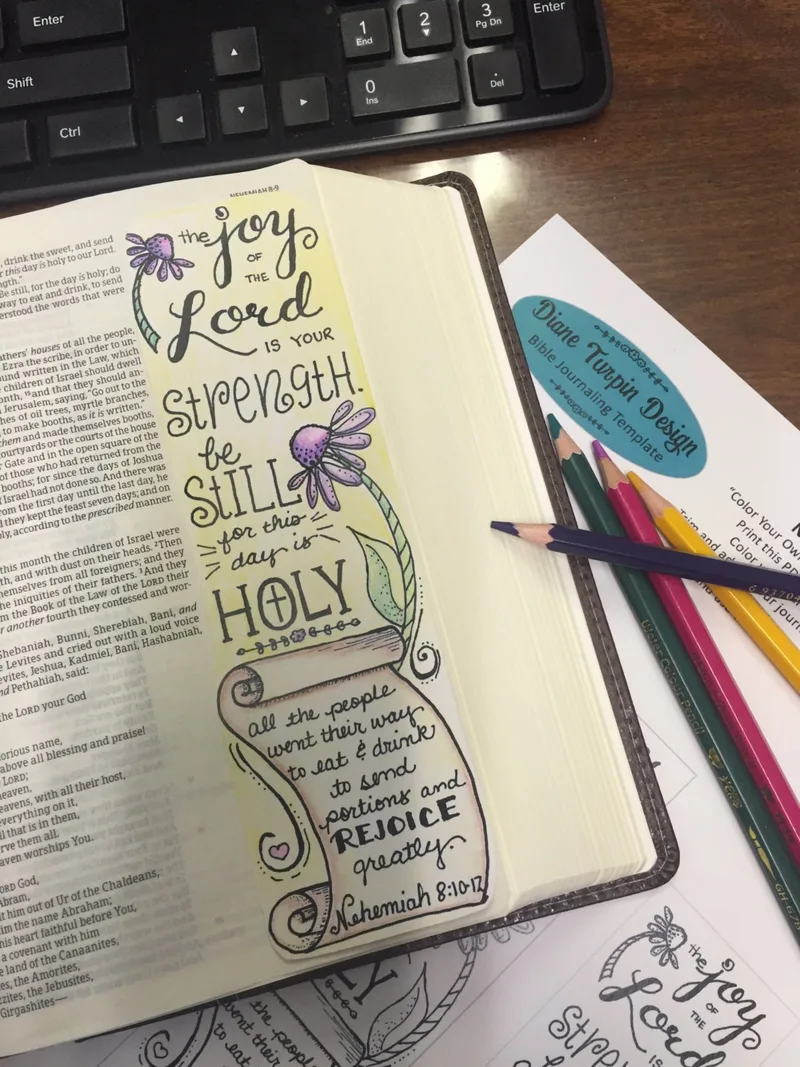 Enter
Shift
Ctrl
1
End
2
3
Pg Dn
Enter
0
Ins
.
Del
NEHEMIAH 8-9
, drink the sweet, and send
this day is holy to our Lord.
"Be still, for the day is holy; do
way to eat and drink, to send
the words that were
houses of all the people,
Ezra the scribe, in order to un-
written in the Law, which
children of Israel should dwell
and that they should an-
Jerusalem, saying, "Go out to the
of oil trees, myrtle branches,
to make booths, as it is written."
them and made themselves booths,
or the courts of the house
Gate and in the open square of the
of those who had returned from the
booths; for since the days of Joshua
Israel had not done so. And there was
from the first day until the last day, he
they kept the feast seven days; and on
according to the prescribed manner.
this month the children of Israel were
and with dust on their heads. ²Then
themselves from all foreigners; and they
the iniquities of their fathers. ³And they
from the Book of the Law of the LORD their
another fourth they confessed and wor-
Bunni, Sherebiah, Bani, and
Levites and cried out with a loud voice
Jeshua, Kadmiel, Bani, Hashabniah,
and Pethahiah, said:
the LORD your God
name,
above all blessing and praise!
LORD;
heaven,
with all their host,
everything on it,
all that is in them,
them all.
worships You.
LORD God,
Abram,
him out of Ur of the Chaldeans,
him the name Abraham;
his heart faithful before You,
a covenant with him
land of the Canaanites,
the Amorites,
the Jebusites,
Girgashites—
the joy
OF
THE
Lord
IS YOUR
STRENGTH.
be
STILL
for this
day is
HOLY
all the people
went their way
to eat & drink
to send
portions and
REJOICE
greatly.
Nehemiah 8:10-12
Diane Turpin Design
Bible Journaling Template
"Color Your Own
Print this
Color
the people
their
to eat
the joy
OF
THE
Lord
IS